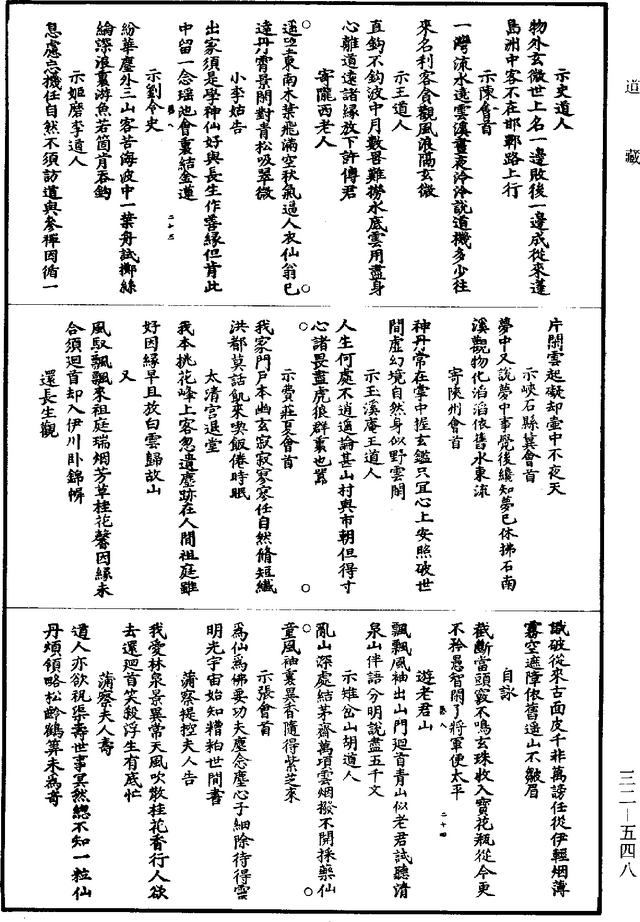 道藏
示史道人
物外玄微世上名一邊敗後一邊成從來蓬
島洲中客不在邯鄲路上行
示陳會首
一灣流水遶雲溪晝夜泠泠說道機多少往
來名利客貪觀風浪隔玄微
示王道人
直鈎不鈎波中月數罟難撈水底雲用盡身
心離道遠諸緣放下許傳君
寄隴西老人
遥望東南木葉飛滿空秋氣過人衣仙翁已
達丹霄景閑對青松吸翠微
小李姑告
出家須是學神仙好與長生作善緣但肯此
中留一念瑶池會裏結金蓮
二十三
示劉令史
紛華塵外三山客苦海波中一葉舟試擲絲
綸深浪裏游魚若箇肯吞鈎
示姬磨李道人
息慮忘機任自然不須訪道與參禪因循一
片閑雲起礙却壷中不夜天
示峽石縣冀會首
夢中又說夢中事覺後纔知夢已休拂石南
溪觀物化滔滔依舊水東流
寄陝州會首
神丹常在掌中握玄鑑只冝心上安照破世
間虛幻境自然身似野雲閑
示玉溪庵王道人
人生何處不逍遥論甚山村與市朝但得寸
心諸畏盡虎狼群裏也囂
示費莊夏會首
我家門戶本幽玄寂寂寥寥任自然脩短纖
洪都莫話飢來喫飯倦時眠
太清宮退堂
我本桃花峰上客忽遺塵跡在人間祖庭雖
好因緣早且放白雲歸故山
又
風馭飄飄來祖庭瑞烟芳草桂花馨因緣未
合須迴首却入伊川卧錦幈
還長生觀
識破從來古面皮千非萬謗任從伊輕烟薄
霧空遮障依舊遥山不皺眉
自詠
截斷當頭竅不鳴玄珠收入寶花瓶從今更
不矜愚智閑了將軍便太平
卷八
二十四
遊老君山
飄飄風袖出山門迴首青山似老君試聽清
泉山伴語分明說盡五千文
示雉岔山胡道人
亂山深處結茅齋萬頃雲烟撥不開採藥仙
童風袖裏異香隨得紫芝來
示張會首
爲仙爲佛要功夫塵念塵心子細除待得雲
明光宇宙始知糟粕世間書
蒲察提控夫人告
我愛林泉景異常天風吹散桂花香行人欲
去還迴首笑殺浮生有底忙
蒲察夫人壽
道人亦欲祝渠壽世事冥然緫不知一粒仙
丹煩領略松齡鶴算未爲奇
三二—五四八